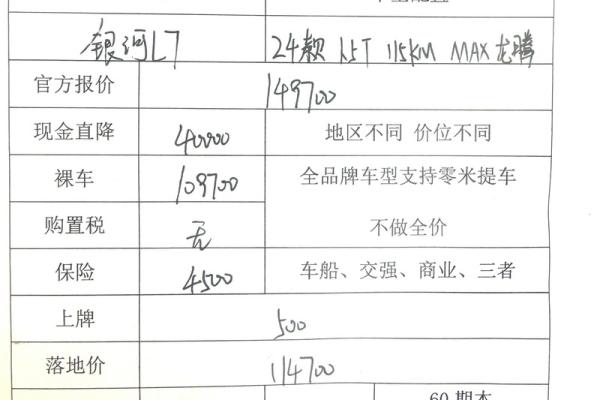 银河L7 24款 1.5T 115KM MAX 龙腾
官方报价 149700
现金直降 40000 地区不同 价位不同
裸车 109700 全品牌车型支持零米提车
购置税 无 不做全价
保险 4500 车船、交强、商业、三者
上牌 500
落地价 114700
60期本